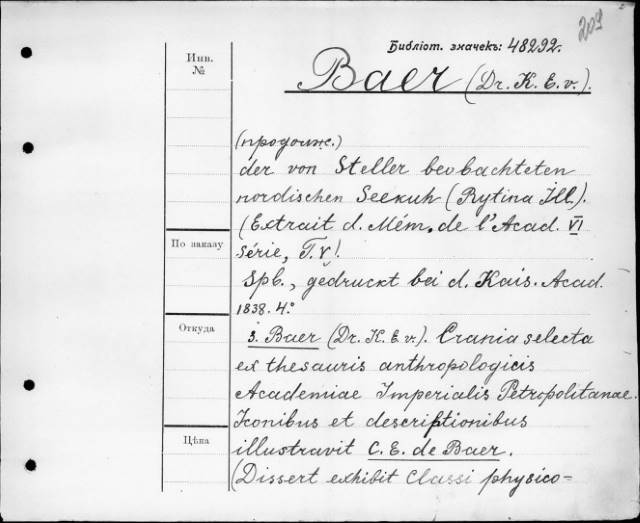 209
Библіот. значекъ: 48292.
Baer (Dr. K. E. v.).
Инв. №
(продолж.)
der von Steller beobachteten
nordischen Seekuh (Rytina Ill.).
(Extrait d. Mém. de l'Acad. VI
Série, T. V).
По заказу
Spb., gedruckt bei d. Kais. Acad.
1838. 4.°
Откуда
3. Baer (Dr. K. E. v.). Crania selecta
ex thesauris anthropologicis
Academiae Imperialis Petropolitanae.
Iconibus et descriptionibus
Цѣна
illustravit C. E. de Baer.
(Dissert exhibit Classi physico=